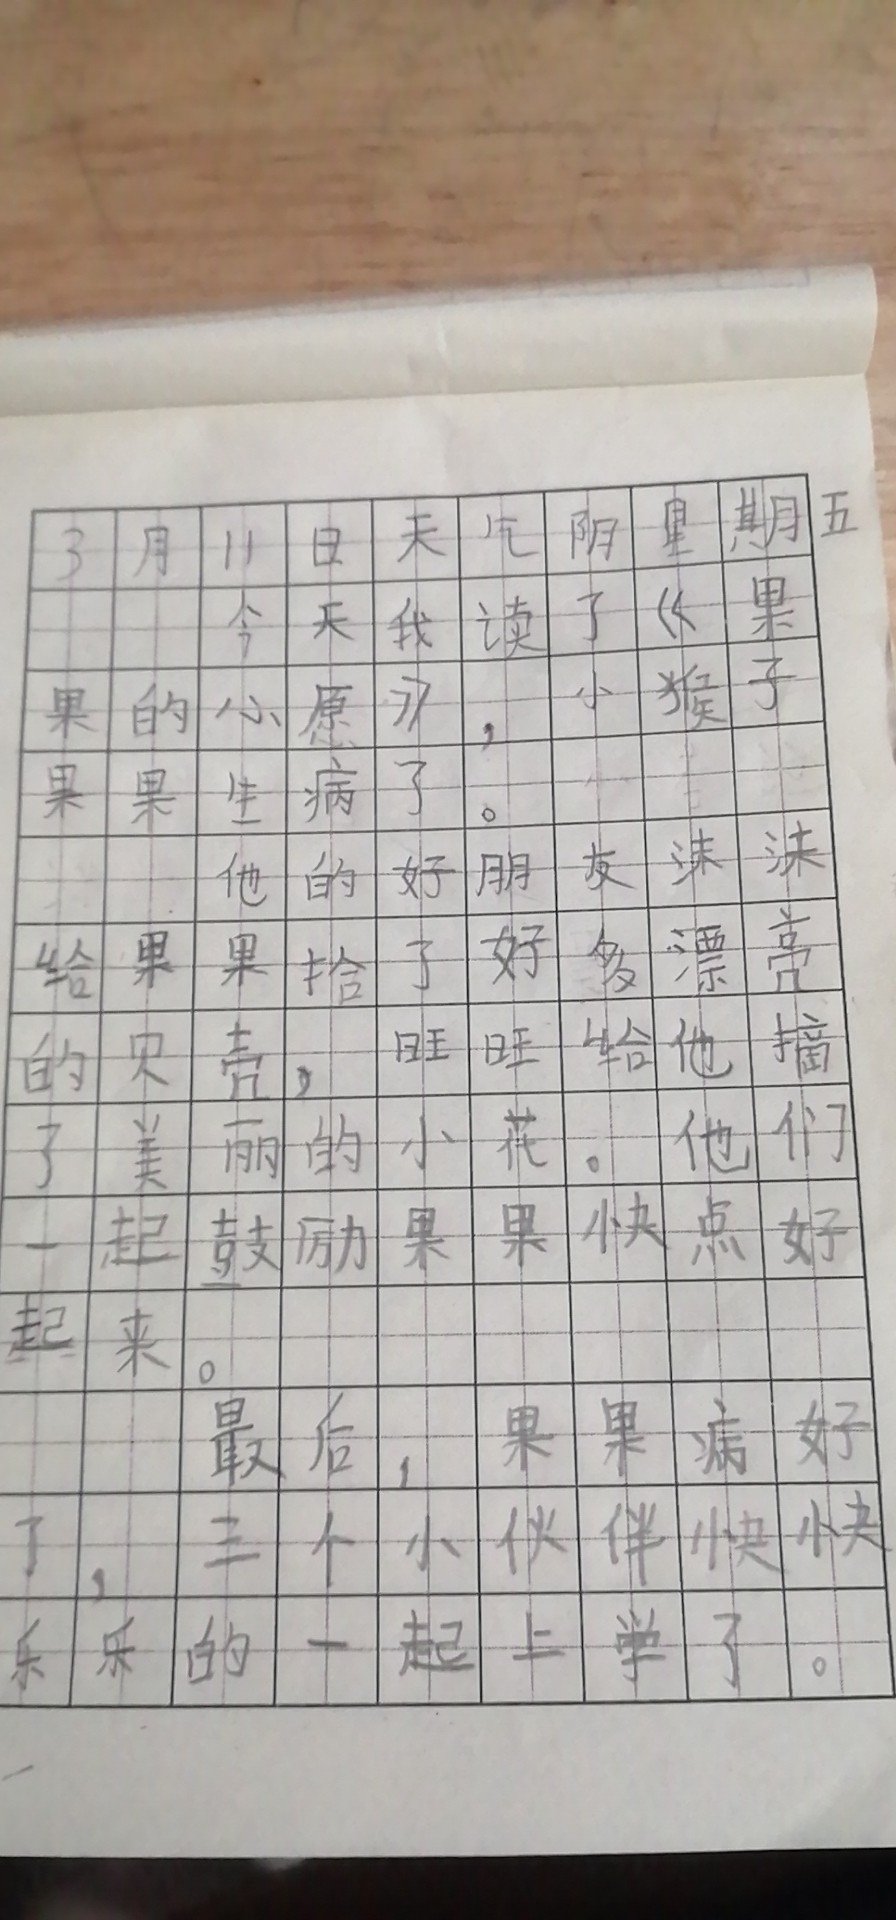 3月11日天气阴星期五
今天我读了《果
果的小愿》，小猴子
果果生病了。
他的好朋友沫沫
给果果拾了好多漂亮
的贝壳，旺旺给他摘
了美丽的小花。他们
一起鼓励果果快点好
起来。
最后，果果病好
了，三个小伙伴快快
乐乐的一起上学了。